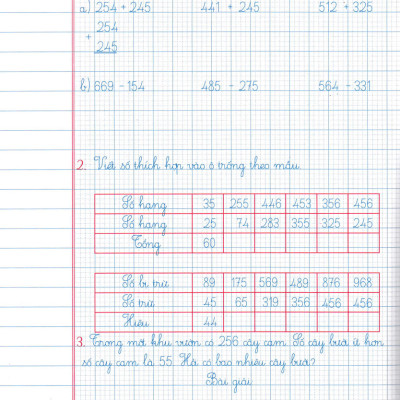 a) 254 + 245 441 + 245 512 + 325
254
+
245
b) 669 - 154 485 - 275 564 - 331
2. Viết số thích hợp vào ô trống theo mẫu
Số hạng 35 255 446 453 356 456
Số hạng 25 74 283 355 325 245
Tổng 60
Số bị trừ 89 175 569 489 876 968
Số trừ 45 65 319 356 456 456
Hiệu 44
3. Trong một khu vườn có 256 cây cam. Số cây bưởi ít hơn
số cây cam là 55. Hỏi có bao nhiêu cây bưởi?
Bài giải